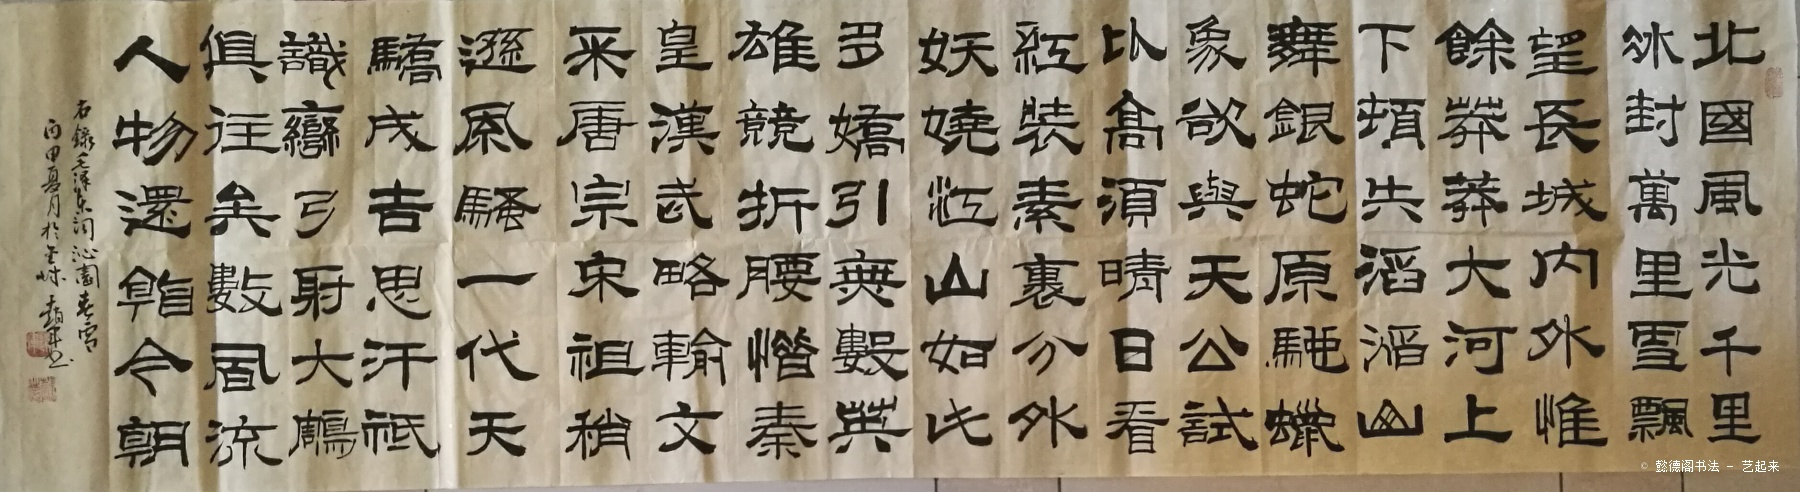 北國風光千里
冰封萬里雪飄
望長城内外惟
餘莽莽大河上
下頓失滔滔山
舞銀蛇原馳蠟
象欲與天公試
比高須晴日看
紅裝素裹分外
妖嬈江山如此
多嬌引無數英
雄競折腰惜秦
皇漢武略輸文
采唐宗宋祖稍
遜風騷一代天
驕成吉思汗祇
識彎弓射大鵰
俱往矣數風流
人物還看今朝
右錄毛澤東詞沁園春雪
丙申夏月於金城 書
© 懿德阁书法 - 艺起来